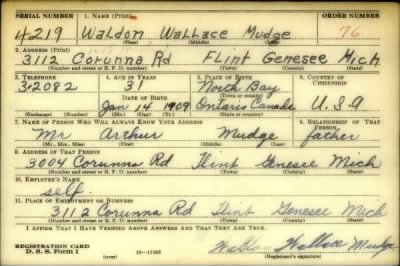 SERIAL NUMBER 1. NAME (Print) ORDER NUMBER
4219 Waldon Wallace Mudge 76
(First) (Middle) (Last)
2. ADDRESS (Print)
3112 Corunna Rd Flint Genesee Mich
(Number and street or R. F. D. number) (Town) (County) (State)
3. TELEPHONE 4. AGE IN YEARS 5. PLACE OF BIRTH 6. COUNTRY OF CITIZENSHIP
3-2082 31 North Bay
DATE OF BIRTH (Town or county)
Jan 14 1909 Ontario Canada U.S.A
(Exchange) (Number) (Mo.) (Day) (Yr.) (State or country)
7. NAME OF PERSON WHO WILL ALWAYS KNOW YOUR ADDRESS 8. RELATIONSHIP OF THAT PERSON
Mr Arthur Mudge father
(Mr., Mrs., Miss) (First) (Middle) (Last)
9. ADDRESS OF THAT PERSON
3004 Corunna Rd Flint Genesee Mich
(Number and street or R. F. D. number) (Town) (County) (State)
10. EMPLOYER'S NAME
self.
11. PLACE OF EMPLOYMENT OR BUSINESS
3112 Corunna Rd Flint Genesee Mich
(Number and street or R. F. D. number) (Town) (County) (State)
I AFFIRM THAT I HAVE VERIFIED ABOVE ANSWERS AND THAT THEY ARE TRUE.
REGISTRATION CARD
D. S. S. Form 1 (over) 16—17105 Waldon Wallace Mudge
(Registrant's signature)